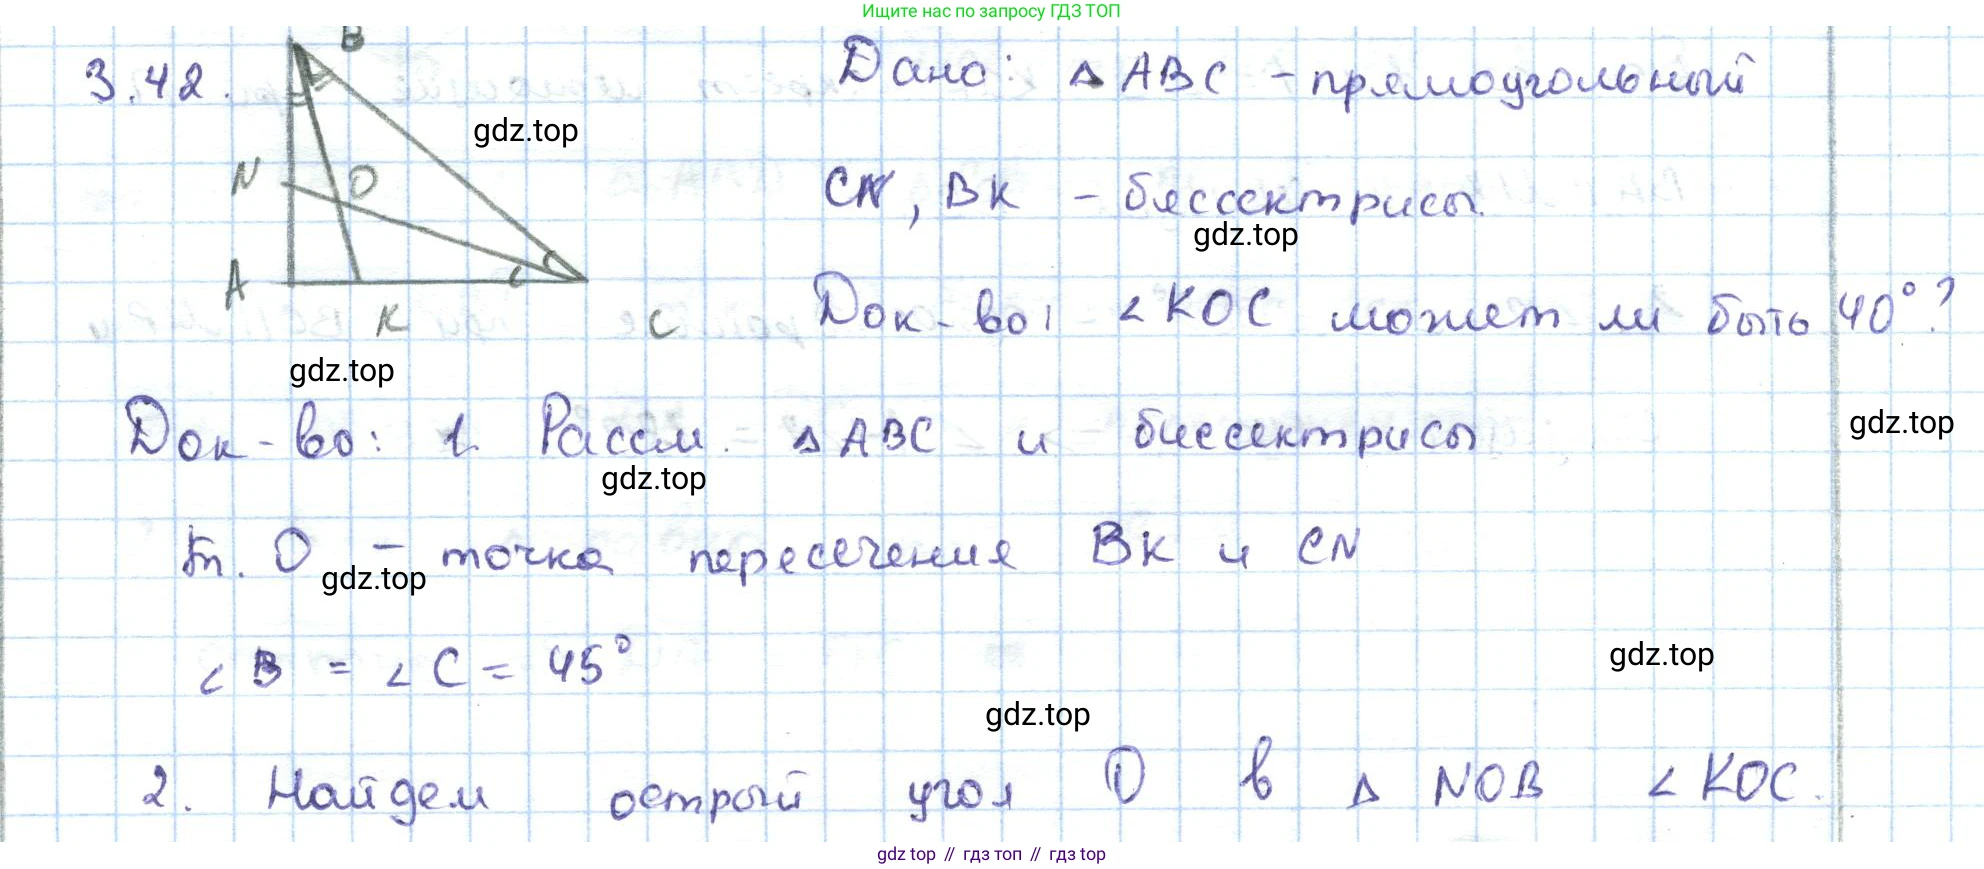 Ищите нас по запросу ГДЗ ТОП
3.42.
B
N
O
A
K
C
Дано: △ ABC - прямоугольный
gdz.top
CN, BK - бессектрисы.
gdz.top
Док-во: ∠KOC может ли быть 40°?
gdz.top
Док-во: 1. Рассм. △ABC и биссектрисы
gdz.top
gdz.top
т. O - точка пересечения BK и CN
gdz.top
∠B = ∠C = 45°
gdz.top
gdz.top
2. Найдем острый угол O в △ NOB ∠KOC.
gdz top // гдз топ // гдз top